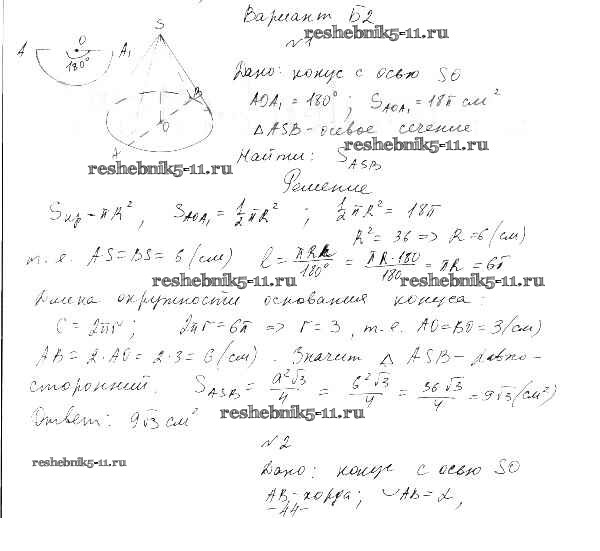 Вариант Б2
reshebnik5-11.ru
№1
S
A O A₁
180°
B
O
A
Дано: конус с осью SO
AOA₁ = 180°; S_AOA₁ = 18π см²
△ASB - осевое сечение
reshebnik5-11.ru
Найти: S_ASB
reshebnik5-11.ru
Решение
Sкр - πR², S_AOA₁ = 1/2 πR²; 1/2 πR² = 18π
R² = 36 => R = 6 (см)
т.е. AS = BS = 6 (см) l = πRn/180° = πR·180/180 = πR = 6π
reshebnik5-11.ru reshebnik5-11.ru
Длина окружности основания конуса:
C = 2πr; 2πr = 6π => r = 3, т.е. AO = BO = 3 (см)
AB = 2·AO = 2·3 = 6 (см). Значит △ ASB - равно-
сторонний. S_ASB = a²√3/4 = 6²√3/4 = 36√3/4 = 9√3 (см²)
Ответ: 9√3 см²
reshebnik5-11.ru
№2
reshebnik5-11.ru
Дано: конус с осью SO
AB - хорда; ◡AB = α,
-44-